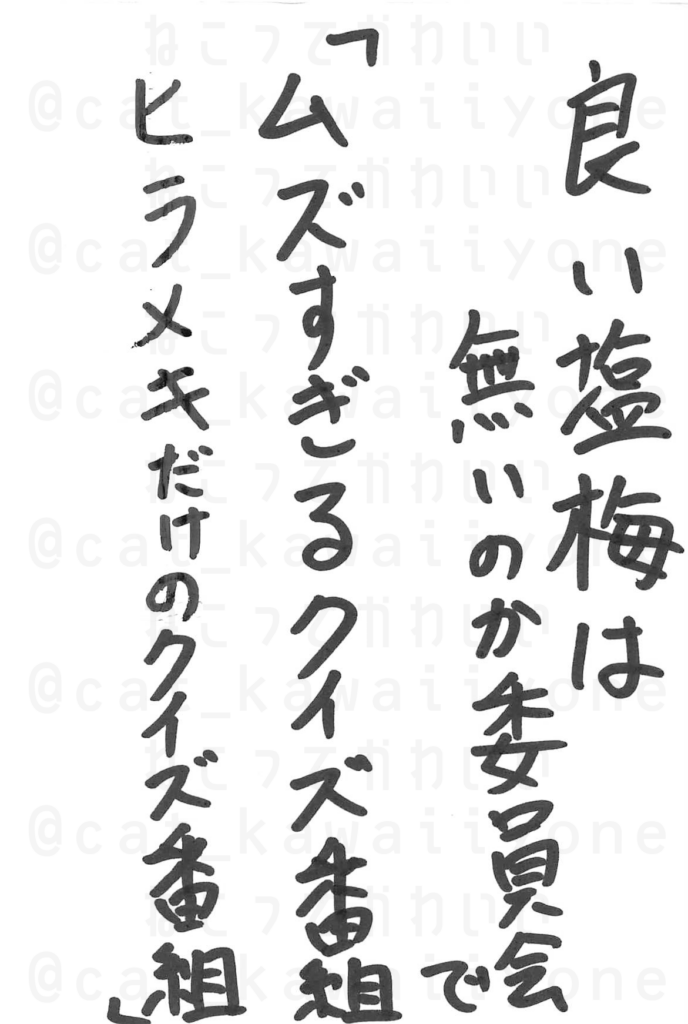 良い塩梅は
無いのか委員会で
「ムズすぎるクイズ番組
ヒラメキだけのクイズ番組」
ねこってかわいい
@cat_kawaiiyone
ねこってかわいい
@cat_kawaiiyone
ねこってかわいい
@cat_kawaiiyone
ねこってかわいい
@cat_kawaiiyone
ねこってかわいい
@cat_kawaiiyone
ねこってかわいい
@cat_kawaiiyone
ねこってかわいい
@cat_kawaiiyone